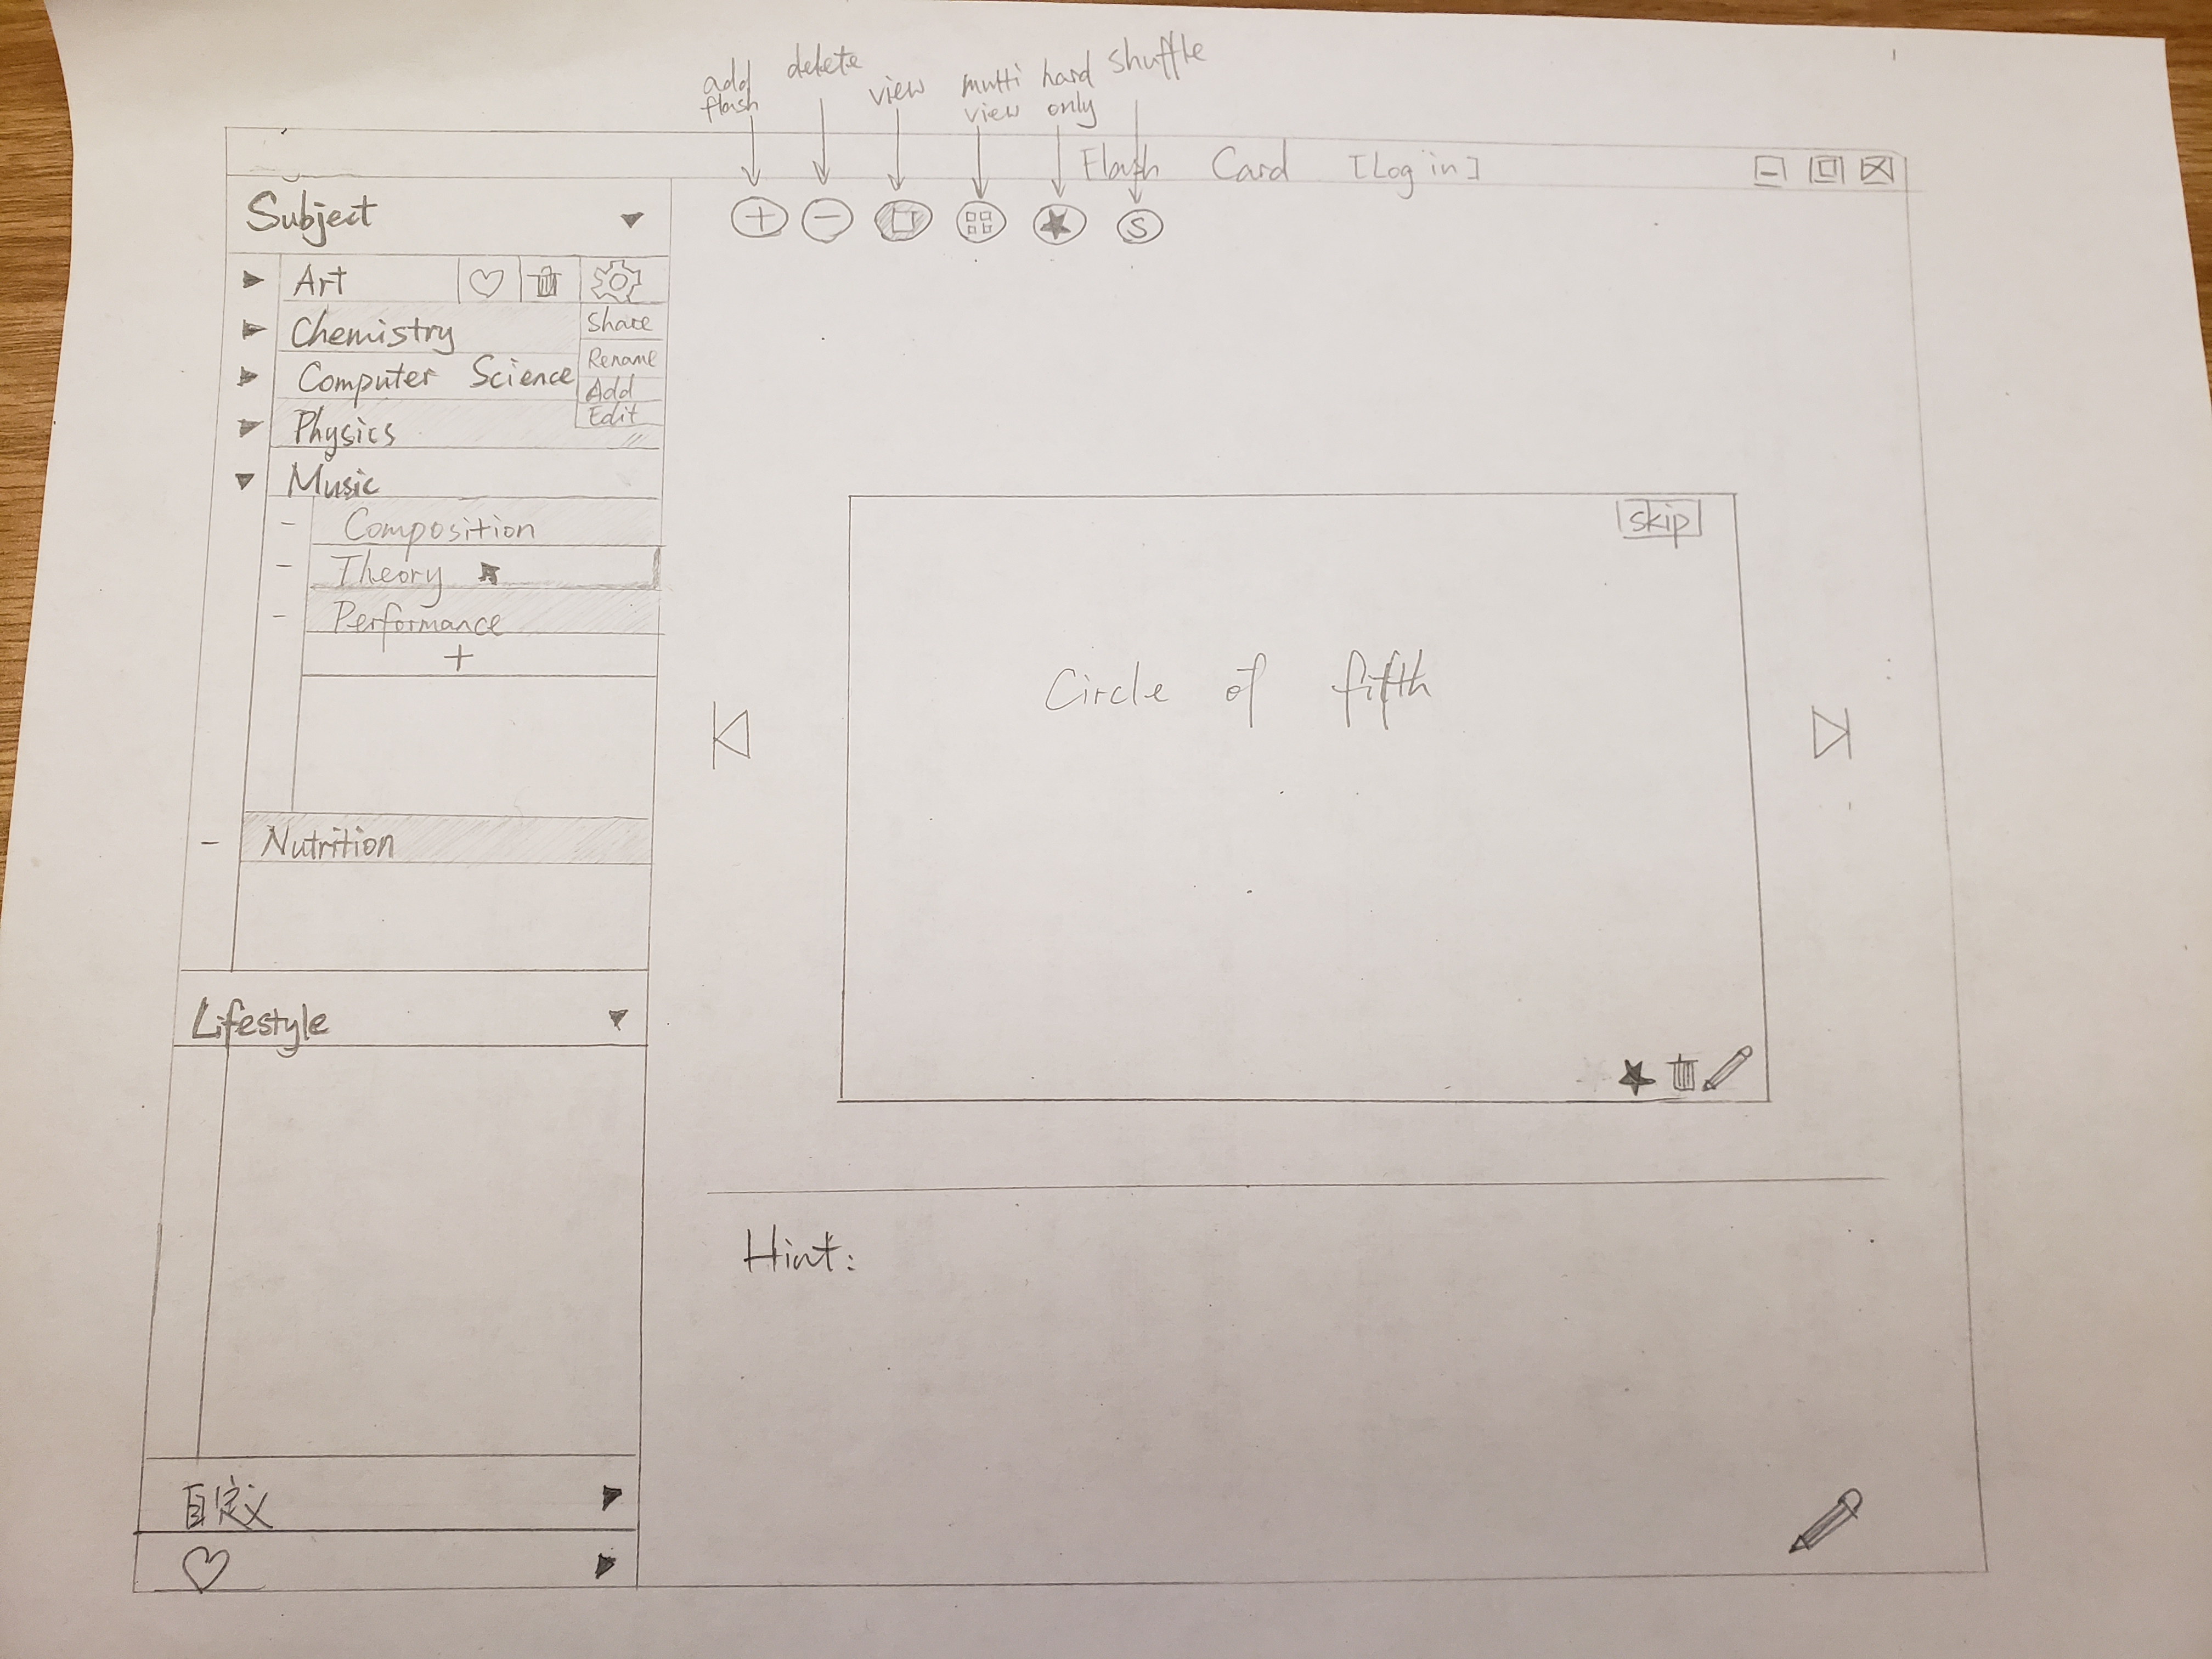 add
flash
delete
view
multi
view
hard
only
shuffle
Flash Card [Log in]
Subject
S
Art
Share
Chemistry
Rename
Computer Science
Add
Edit
Physics
Music
Composition
Theory
Performance
Nutrition
Lifestyle
自定义
skip
Circle of fifth
Hint: